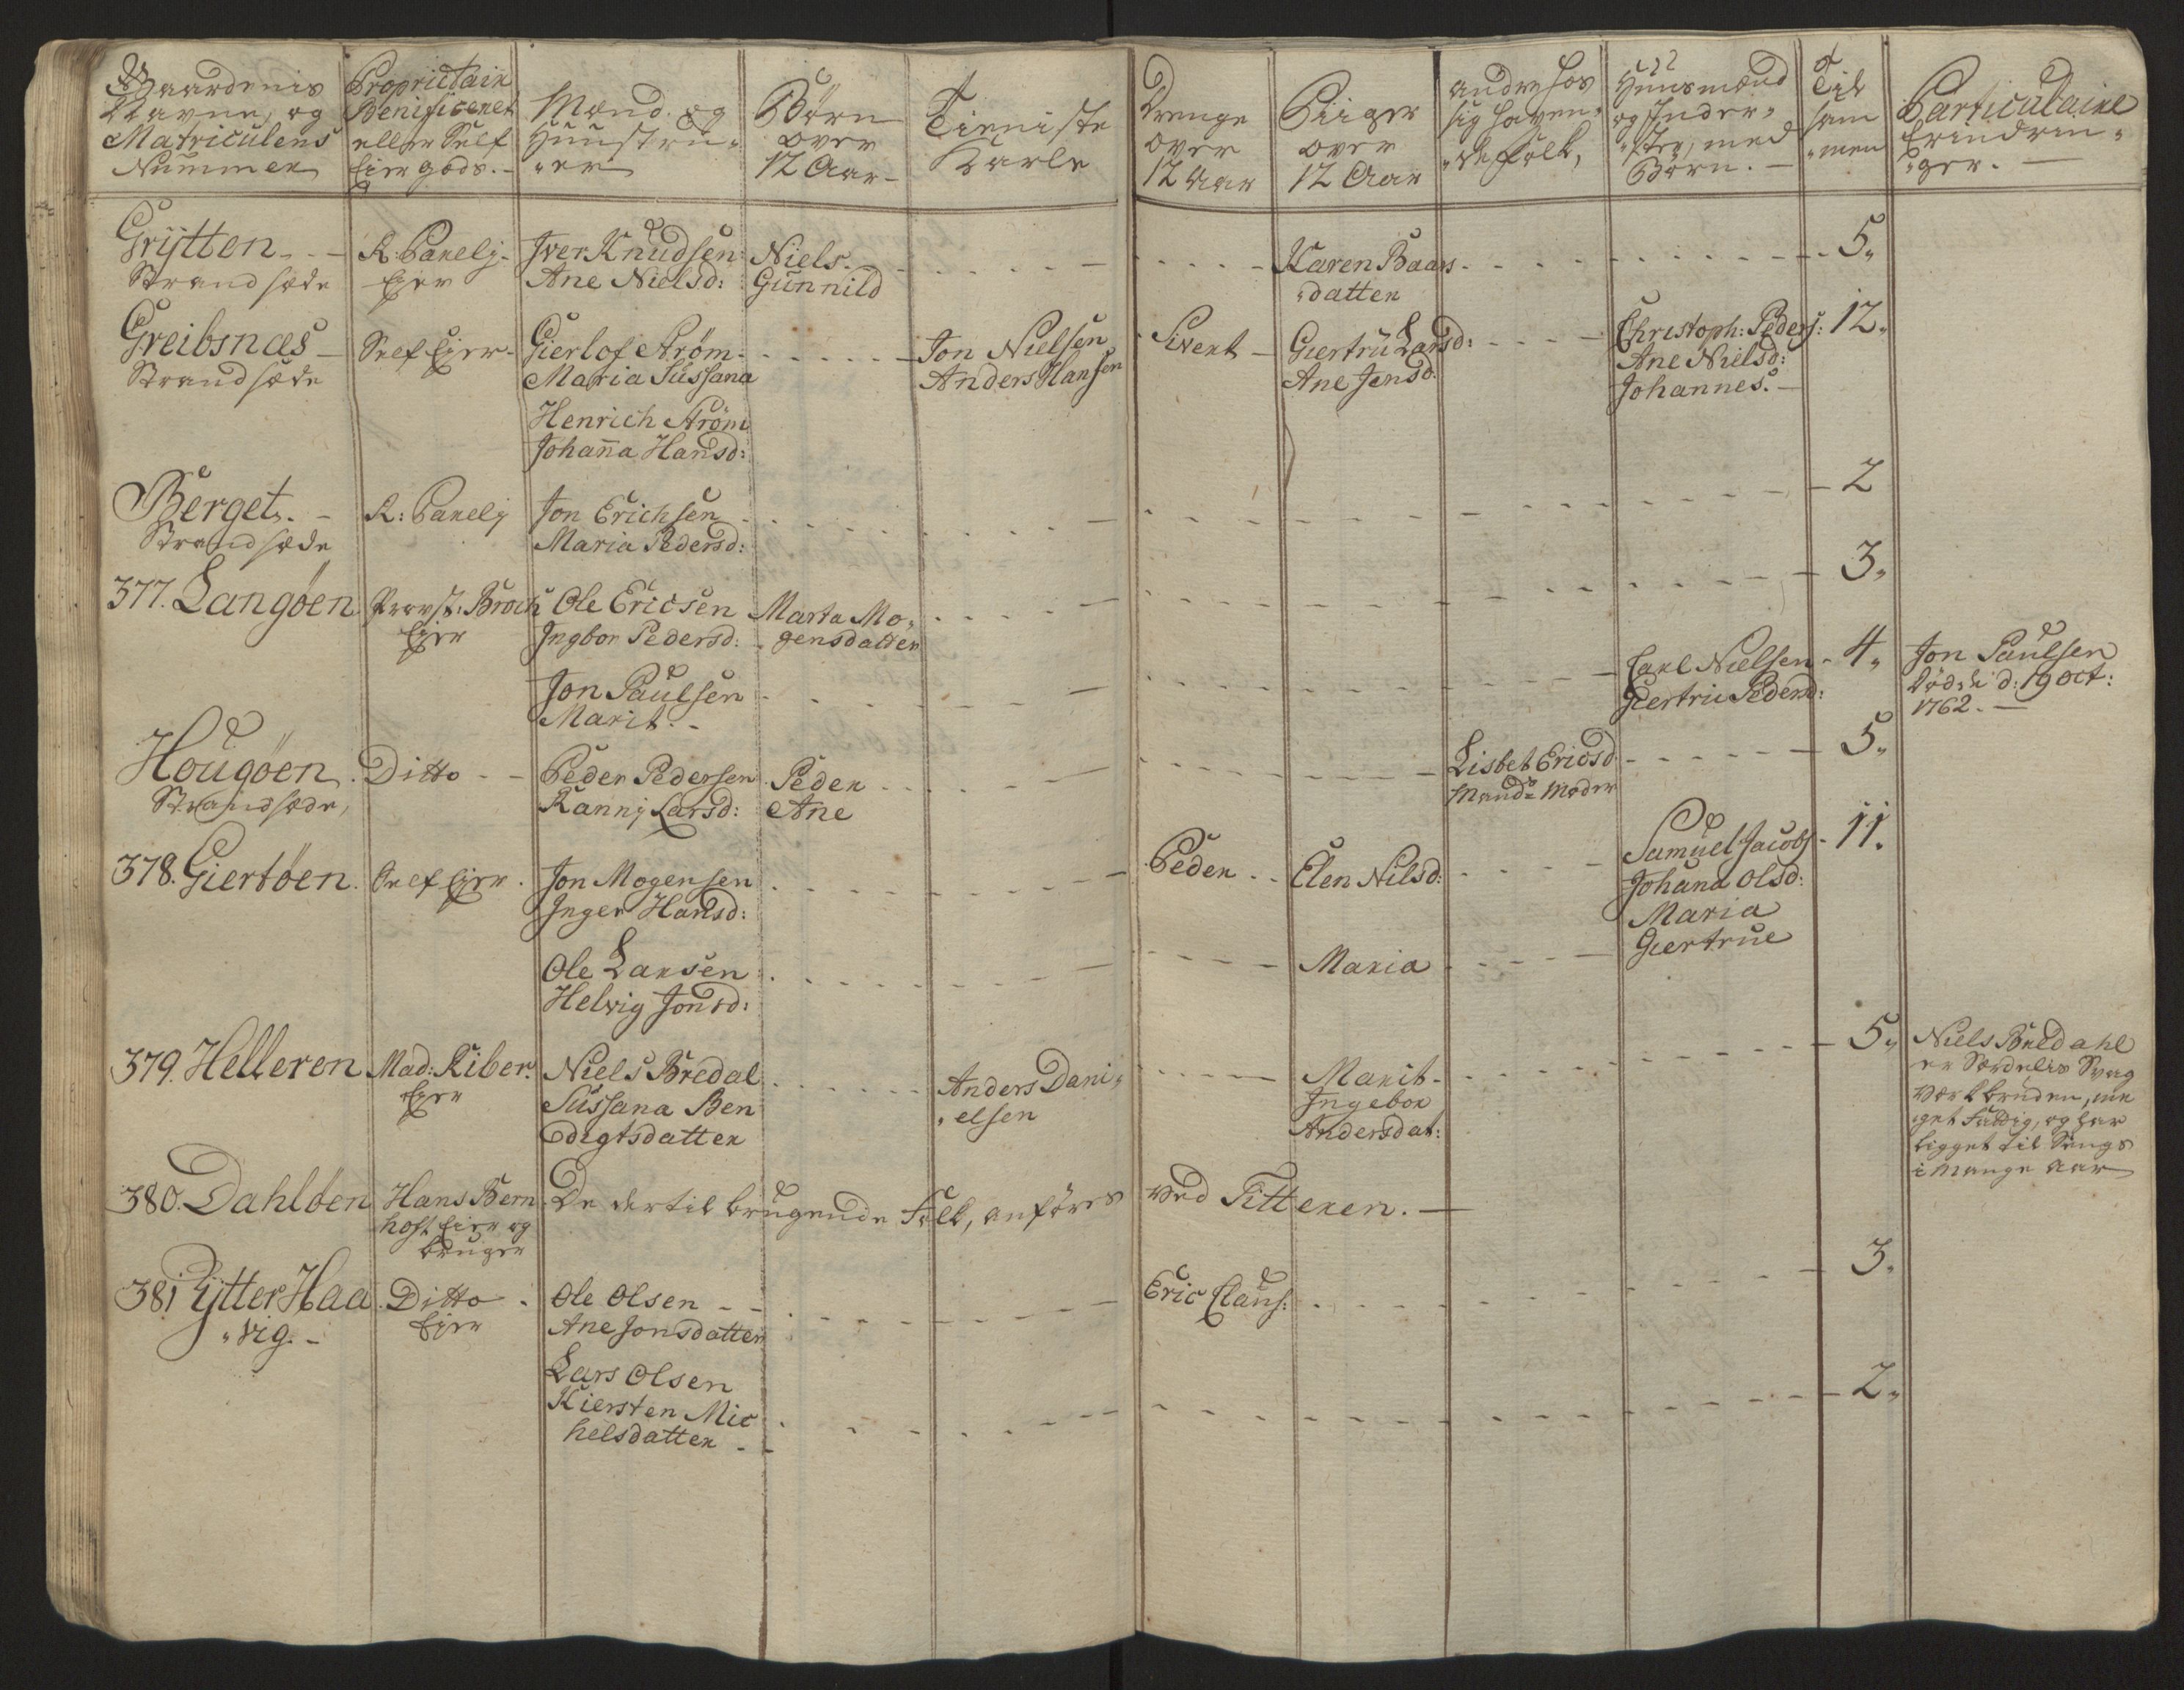 Gaardenis Navne, og Matriculens Nummer
Proprietair Benificeret eller Self Eier gods.
Mænd og Huustru-er
Børn over 12 Aar
Tieniste Karle
Drenge over 12 Aar
Piiger over 12 Aar
andre hos sig havende folk,
Huusmænd og Inderster, med Børn.
Til sammen
Particulaire Erindringer.
Grÿtten Strandsæde
R: Parelj Ejer
Iver Knudsen
Ane Nielsd:
Niels
Gunnild
Karen Baars
datter
5.
Greibsnæs Strandsæde
Self Ejer
Gierlof Strøm
Maria Sussana
Henrich Strøm
Johana Hansd:
Jon Nielsen
Anders Hansen
Sivert
Giertru Larsd:
Ane Jensd.
Christoph: Peders:
Ane Nielsd:
Johannes.
12.
Berget. Strandsæde
R: Parelj
Jon Erichsen
Maria Pedersd:
2
377. Langøen
Provst: Broch Ejer
Ole Ericsen
Ingbor Pedersd:
Marta Mo-
gensdatter
3.
Jon Paulsen
Marit.
Carl Nielsen
Giertru Pedersd:
4.
Jon Paulsen
døde d: 19 oct:
1762.
Hougøen Strandsæde,
Ditto
Peder Pedersen
Ranni Larsd:
Peder
Ane
Lisbet Ericsd
Mands Moder
5.
378. Giertøen
Self Ejer
Jon Mogensen
Inger Hansd:
Peder
Elen Nilsd:
Samuel Jacobs
Johana Olsd:
Maria
Giertrue
11.
Ole Larsen
Helvig Jonsd:
Maria
379. Helleren
Mad: Riber. Ejer
Niels Bredal
Sussana Ben
edigtsdatter
Anders Dani-
elsen
Marit
Ingebor
Andersdat:
5.
Niels Bredahl
er Særdelis Svag
værkbruden, me
get fattig, og har
ligget til Sengs
i mange Aar
380. Dahløen
Hans Bern
hoft Eier og
bruger
De dertil brugende Folk, anføres ved Titteren.
381 Ÿtter Haa
vig.
Ditto
Ejer
Ole Olsen
Ane Jonsdatter
Eric Claus:
3.
Lars Olsen
Kiersten Mic
helsdatter
2.